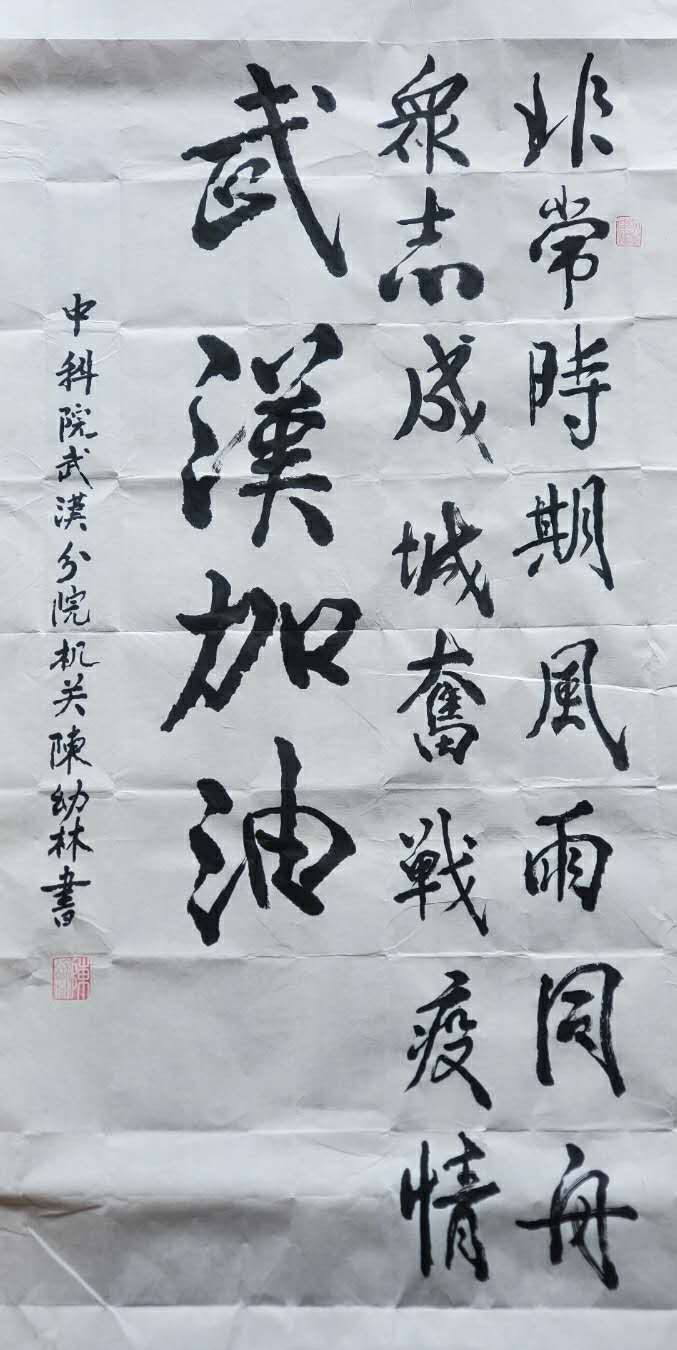 非常時期風雨同舟
衆志成城奮戰疫情
武漢加油
中科院武漢分院机关陳幼林書